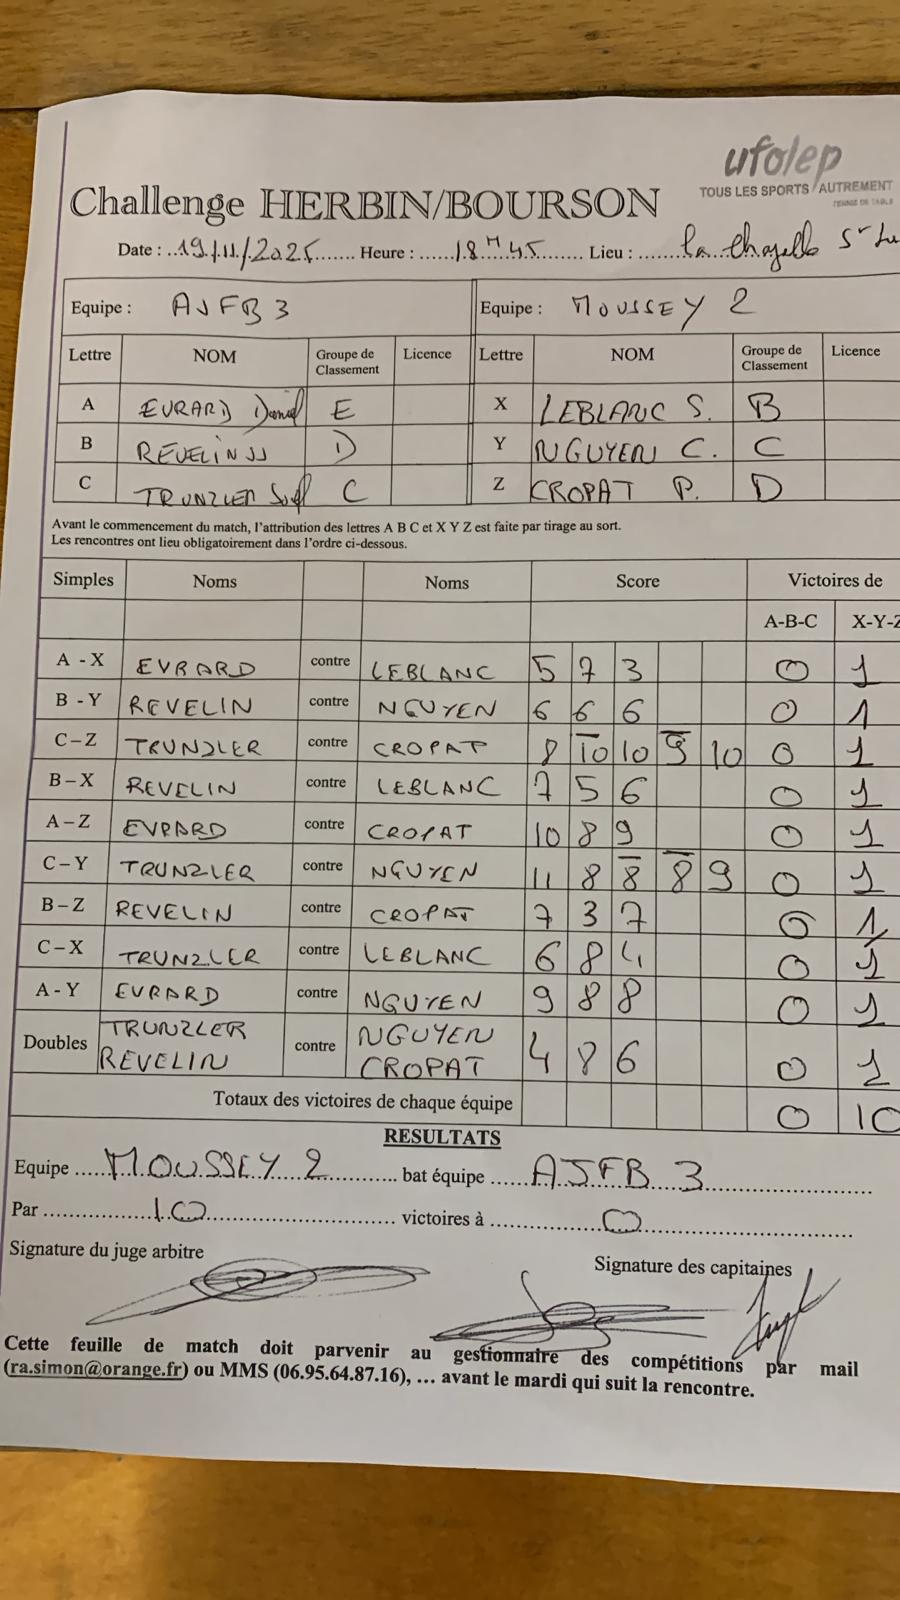 ufolep
TOUS LES SPORTS / AUTREMENT
TENNIS DE TABLE
Challenge HERBIN/BOURSON
Date : ..19/11/2025....... Heure : ......18H45........ Lieu : .......la Chapelle St Lu
Equipe : AJFB 3 Equipe : MOUSSEY 2
Lettre NOM Groupe de Classement Licence Lettre NOM Groupe de Classement Licence
A EVRARD Daniel E X LEBLANC S. B
B REVELIN JJ D Y NGUYEN C. C
C TRUNZLER C Z CROPAT P. D
Avant le commencement du match, l'attribution des lettres A B C et X Y Z est faite par tirage au sort.
Les rencontres ont lieu obligatoirement dans l'ordre ci-dessous.
Simples Noms Noms Score Victoires de
A-B-C X-Y-Z
A - X EVRARD contre LEBLANC 5 7 3 0 1
B - Y REVELIN contre NGUYEN 6 6 6 0 1
C – Z TRUNZLER contre CROPAT 8 1̅0̅ 10 9̅ 10 0 1
B – X REVELIN contre LEBLANC 7 5 6 0 1
A – Z EVRARD contre CROPAT 10 8 9 0 1
C – Y TRUNZLER contre NGUYEN 11 8 8̅ 8̅ 9 0 1
B – Z REVELIN contre CROPAT 7 3 7 0 1
C – X TRUNZLER contre LEBLANC 6 8 4 0 1
A - Y EVRARD contre NGUYEN 9 8 8 0 1
Doubles TRUNZLER REVELIN contre NGUYEN CROPAT 4 8 6 0 1
Totaux des victoires de chaque équipe 0 10
RESULTATS
Equipe .....MOUSSEY 2............ bat équipe ......AJFB 3.......................
Par ..................10............................ victoires à ..................0..............................
Signature du juge arbitre Signature des capitaines
Cette feuille de match doit parvenir au gestionnaire des compétitions par mail
(ra.simon@orange.fr) ou MMS (06.95.64.87.16), … avant le mardi qui suit la rencontre.